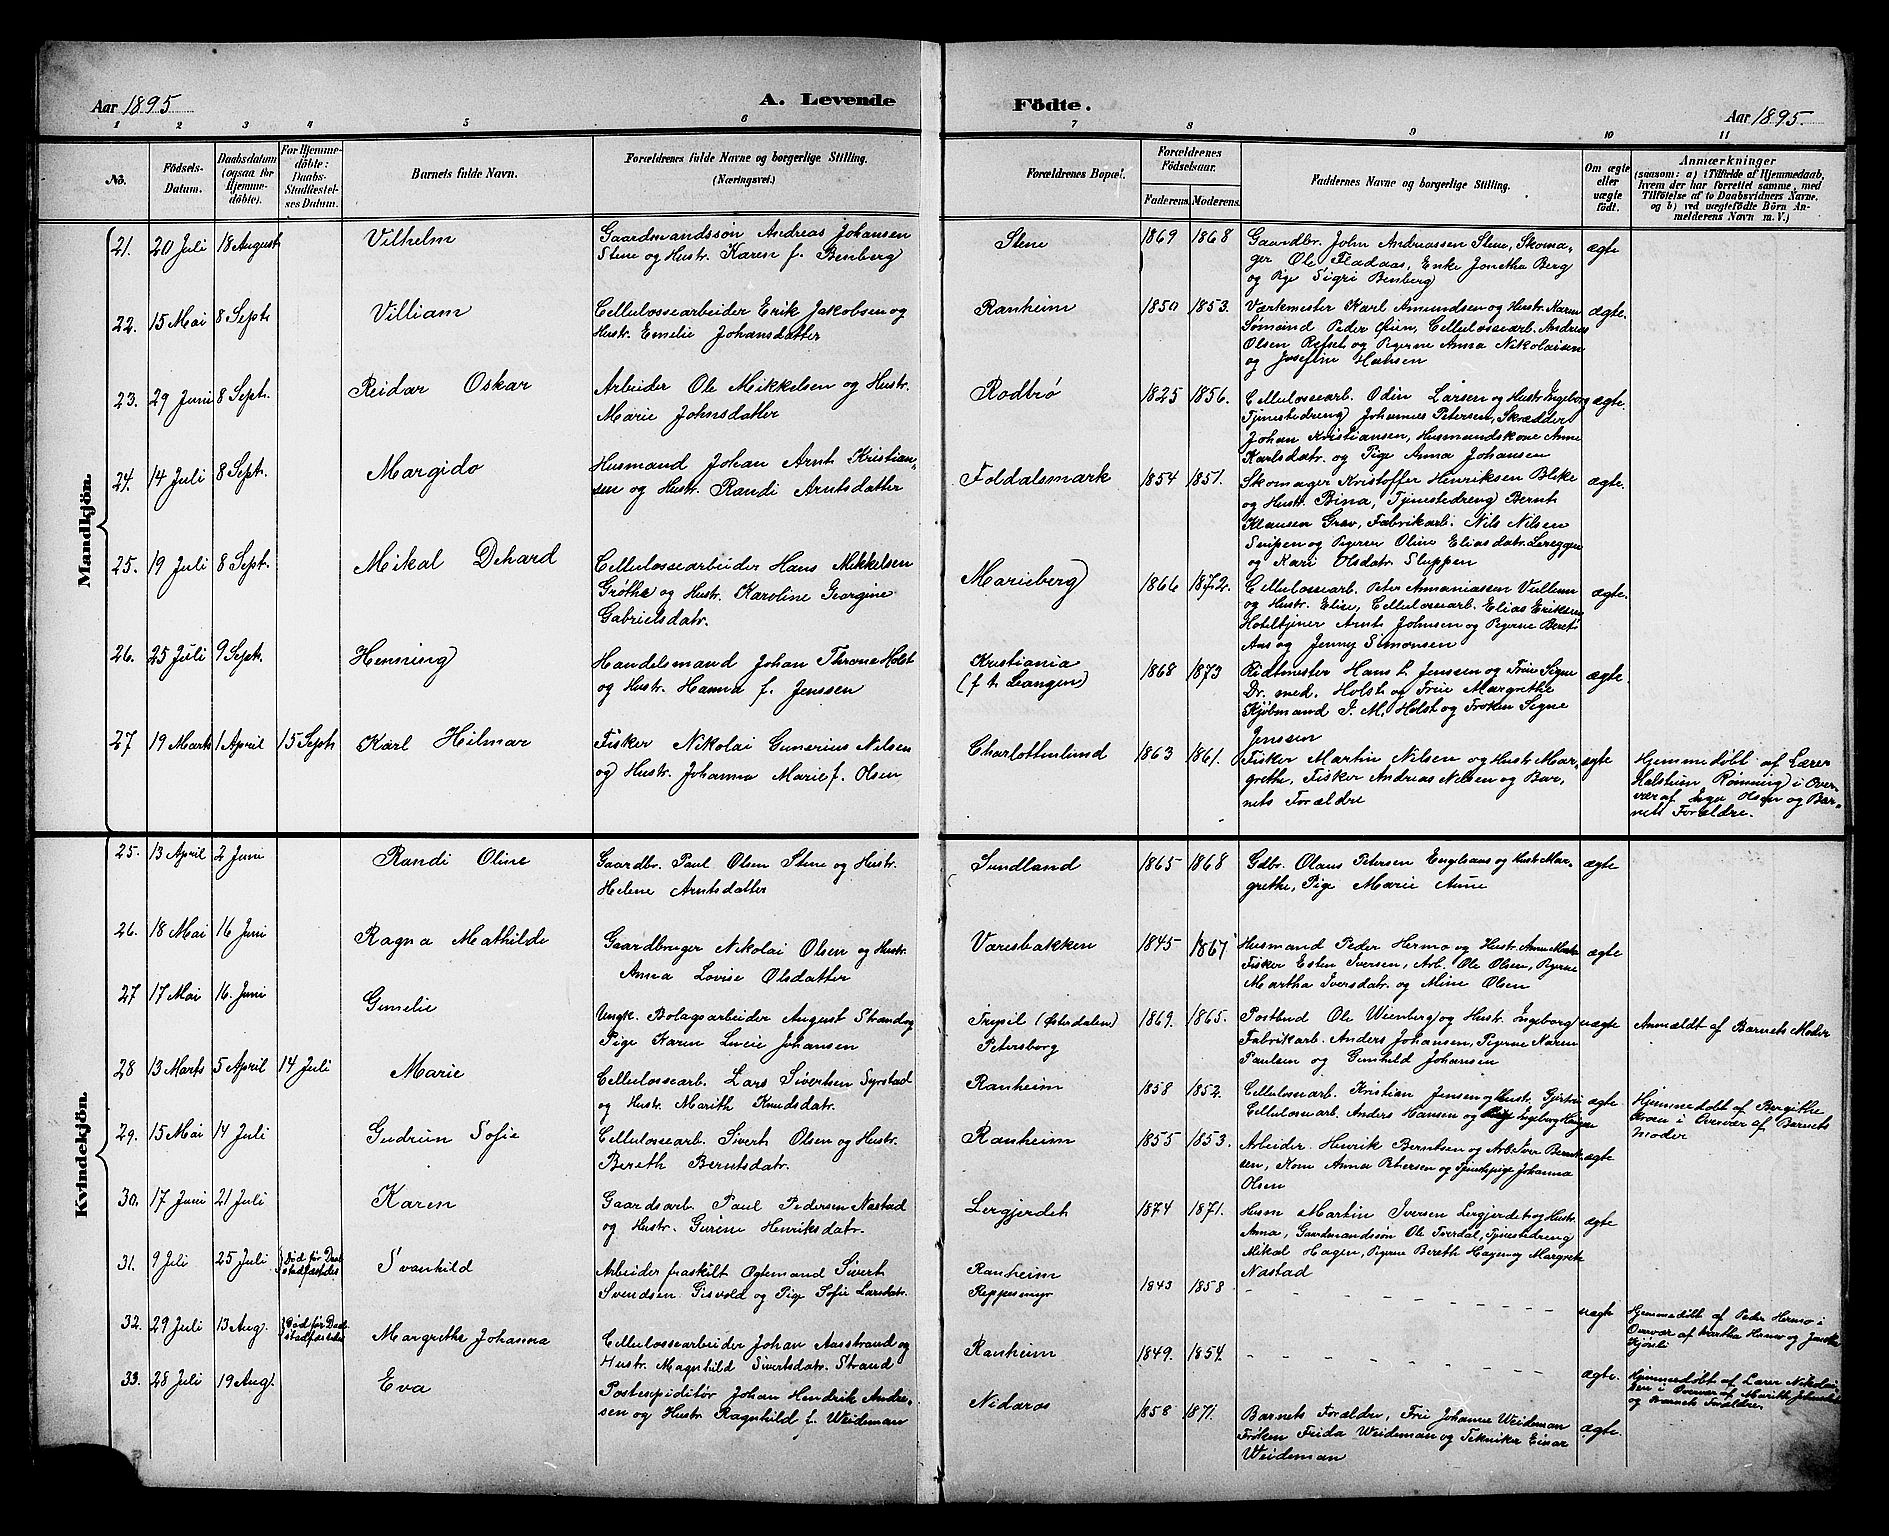 Aar 1895
A. Levende
Födte.
Aar 1895.
1 2 3 4 5 6 7 8 9 10 11
No.
Födsels-
Datum.
Daabsdatum
(ogsaa for
Hjemme-
döbte).
For Hjemme-
döbte:
Daabs-
Stadfæstel-
ses Datum.
Barnets fulde Navn.
Forældrenes fulde Navne og borgerlige Stilling.
(Næringsvei.)
Forældrenes Bopæl.
Forældrenes
Födselsaar.
Faderens.
Moderens.
Faddernes Navne og borgerlige Stilling.
Om ægte
eller
uægte
födt.
Anmærkninger
(saasom: a) i Tilfælde af Hjemmedaab,
hvem der har forrettet samme, med
Tilföielse af to Daabsvidners Navne,
og b) ved uægtefödte Börn An-
melderens Navn m. V.)
Mandkjön.
21. 20 Juli 18 August Vilhelm
Gaardmandssøn Andreas Johansen
Stene og Hustr. Karen f. Benberg
Stene 1869 1868
Gaardbr. John Andreassen Stene, Skoma-
ger Ole Fladaas, Enke Jonetha Berg
og Pige Sigri Benberg
ægte
22. 15 Mai 8 Septr Villiam
Cellulossearbeider Erik Jakobsen og
Hustr. Emelie Johansdatter
Ranheim 1850 1853.
Værkmester Karl Amundsen og Hustr. Karen
Sømand Peder Øien, Cellulossearb. Andreas
Olsen Refset og Pigerne Anna Nikolaisen
og Josefine Hansen
ægte.
23. 29 Juni 8 Septr. Reidar Oskar
Arbeider Ole Mikkelsen og Hustr.
Marie Johnsdatter
Rodbrø 1825 1856.
Cellulossearb. Odin Larsen og Hustr. Ingeborg
Tjenestedreng Johannes Petersen, Skrædder
Johan Kristiansen, Husmandskone Anne
Karlsdatr. og Pige Anna Johansen
ægte.
24. 14 Juli 8 Septr. Margido
Husmand Johan Arnt Kristian-
sen og Hustr. Randi Arntsdatter
Foldalsmark 1854 1851.
Skomager Kristoffer Henriksen Bleke
og Hustr. Bina, Tjenestedreng Bernt
Klausen Grav, Fabrikarb. Nils Nilsen
Snipen og Pigerne Oline Eliasdatr. Lereggen
og Kari Olsdatr Sluppen
ægte.
25. 19 Juli 8 Septr. Mikal Dehard
Cellulossearbeider Hans Mikkelsen
Grøthe og Hustr. Karoline Georgine
Gabrielsdatr.
Marieberg 1866 1872.
Cellulossearb. Peter Annaniassen Vullum
og Hustr. Elise, Cellulossearb. Elias Eriksen
Hoteltjener Arnt Johnsen og Pigerne Beret
Aas og Jenny Simonsen
ægte.
26. 25 Juli 9 Septr. Henning
Handelsmand Johan Throne Holst
og Hustr. Hanna f. Jenssen
Kristiania
(f. t. Leangen)
1868 1873
Ridtmester Hans L. Jenssen og Frue Signe
Dr. med. Holst og Frue Margrethe
Kjøbmand J. M. Holst og Frøken Signe
Jenssen
ægte.
27 19 Marts 1 April 15 Septr Karl Hilmar
Fisker Nikolai Gunerius Nilsen
og Hustr. Johanna Marie f. Olsen
Charlottenlund 1863 1861.
Fisker Martin Nilsen og Hustr. Mar-
grethe, Fisker Andreas Nilsen og Bar-
nets Forældre
ægte
Hjemmedøbt af Lærer
Halstein Rønning i Over-
vær af Inga Olsen og Bar-
nets Forældre.
Kvindekjön.
25. 13 April 2 Juni Randi Oline
Gaardbr. Paul Olsen Stene og Hustr.
Helene Arntsdatter
Sundland 1865 1868
Gdbr. Olaus Petersen Engelsaas og Hustr. Mar-
grethe, Pige Marie Aune
ægte
26. 18 Mai 16 Juni Ragna Mathilde
Gaardbruger Nikolai Olsen og Hustr.
Anna Lovise Olsdatter
Væresbakken 1845 1867
Husmand Peder Hermo og Hustr. Anne Marta
Fisker Esten Iversen, Arb. Ole Olsen, Pigerne
Martha Iversdatr. og Mine Olsen
ægte
27 17 Mai 16. Juni Gunelie
Ungk. Bolagsarbeider August Strand og
Pige Karen Lucie Johansen
Trysil (Østerdalen)
Petersborg
1869. 1865.
Postbud Ole Weenberg og Hustr. Ingeborg
Fabrikarb. Anders Johansen, Pigerne Karen
Paulsen og Gunhild Johansen
uægte
Anmeldt af Barnets Moder
28 13 Marts 5 April 14 Juli Marie
Cellulossearb. Lars Sivertsen Syrstad
og Hustr. Marith Knudsdatr.
Ranheim 1858 1852.
Cellulossearb. Kristian Jensen og Hustr. Gjertru
Cellulossearb. Anders Hansen og Pige Ingeborg Haugen
ægte
Hjemmedøbt af Bergithe
Kroen i Overvær af Barnets
Moder
29. 15 Mai 14 Juli Gudrun Sofie
Cellulossearb. Sivert Olsen og Hustr.
Bereth Berntsdatr.
Ranheim 1855 1853.
Arbeider Henrik Berntsen og Arb. Iver Bernt-
sen, Kone Anna Petersen og Tjenestepige Johanna
Olsen
ægte
30. 17 Juni 21 Juli Karen
Gaardsarb. Paul Pedersen Nastad
og Hustr. Gurine Henriksdatr.
Lergjerdet 1874 1871.
Husm. Martin Iversen Lergjerdet og Hustr.
Anna, Gaardmandssøn Ole Tverdal, Tjenestedreng
Mikal Hagen, Pigerne Bereth Hagen og Margrete
Nastad
ægte
31. 9 Juli 25 Juli {Død før Daab
stadfæstedes Svanhild
Arbeider fraskilt Ægtemand Sivert
Svendsen Gisvold og Pige Sofie Larsdatr.
Ranheim
Reppesmyr
1843 1858
- - - - - - - - - -
uægte
Hjemmedøbt af Peder Hermo i
Overvær af Martha Hermo og Jonetta
Kjønli
32. 29 Juli 13 Aug. {Død før Daab
stadfæstedes Margrethe Johanna
Cellulossearbeider Johan Aasstrand og
Hustr. Magnhild Sivertsdatr. Strand
Ranheim 1849. 1854.
- - - - - - - -
ægte.
Hjemmedøbt af Lærer Nikolai-
sen i Overvær af Marith
og Barnets Forældre.
33. 28 Juli 19 Aug. Eva
Postexpeditør Johan Hendrik Andre-
sen og Hustr Ragnhild f. Weideman
Nidaros 1858 1871.
Barnets Forældre, Frue Johanne Weideman
Frøken Frida Weideman og Tekniker Einar
Weideman
ægte.